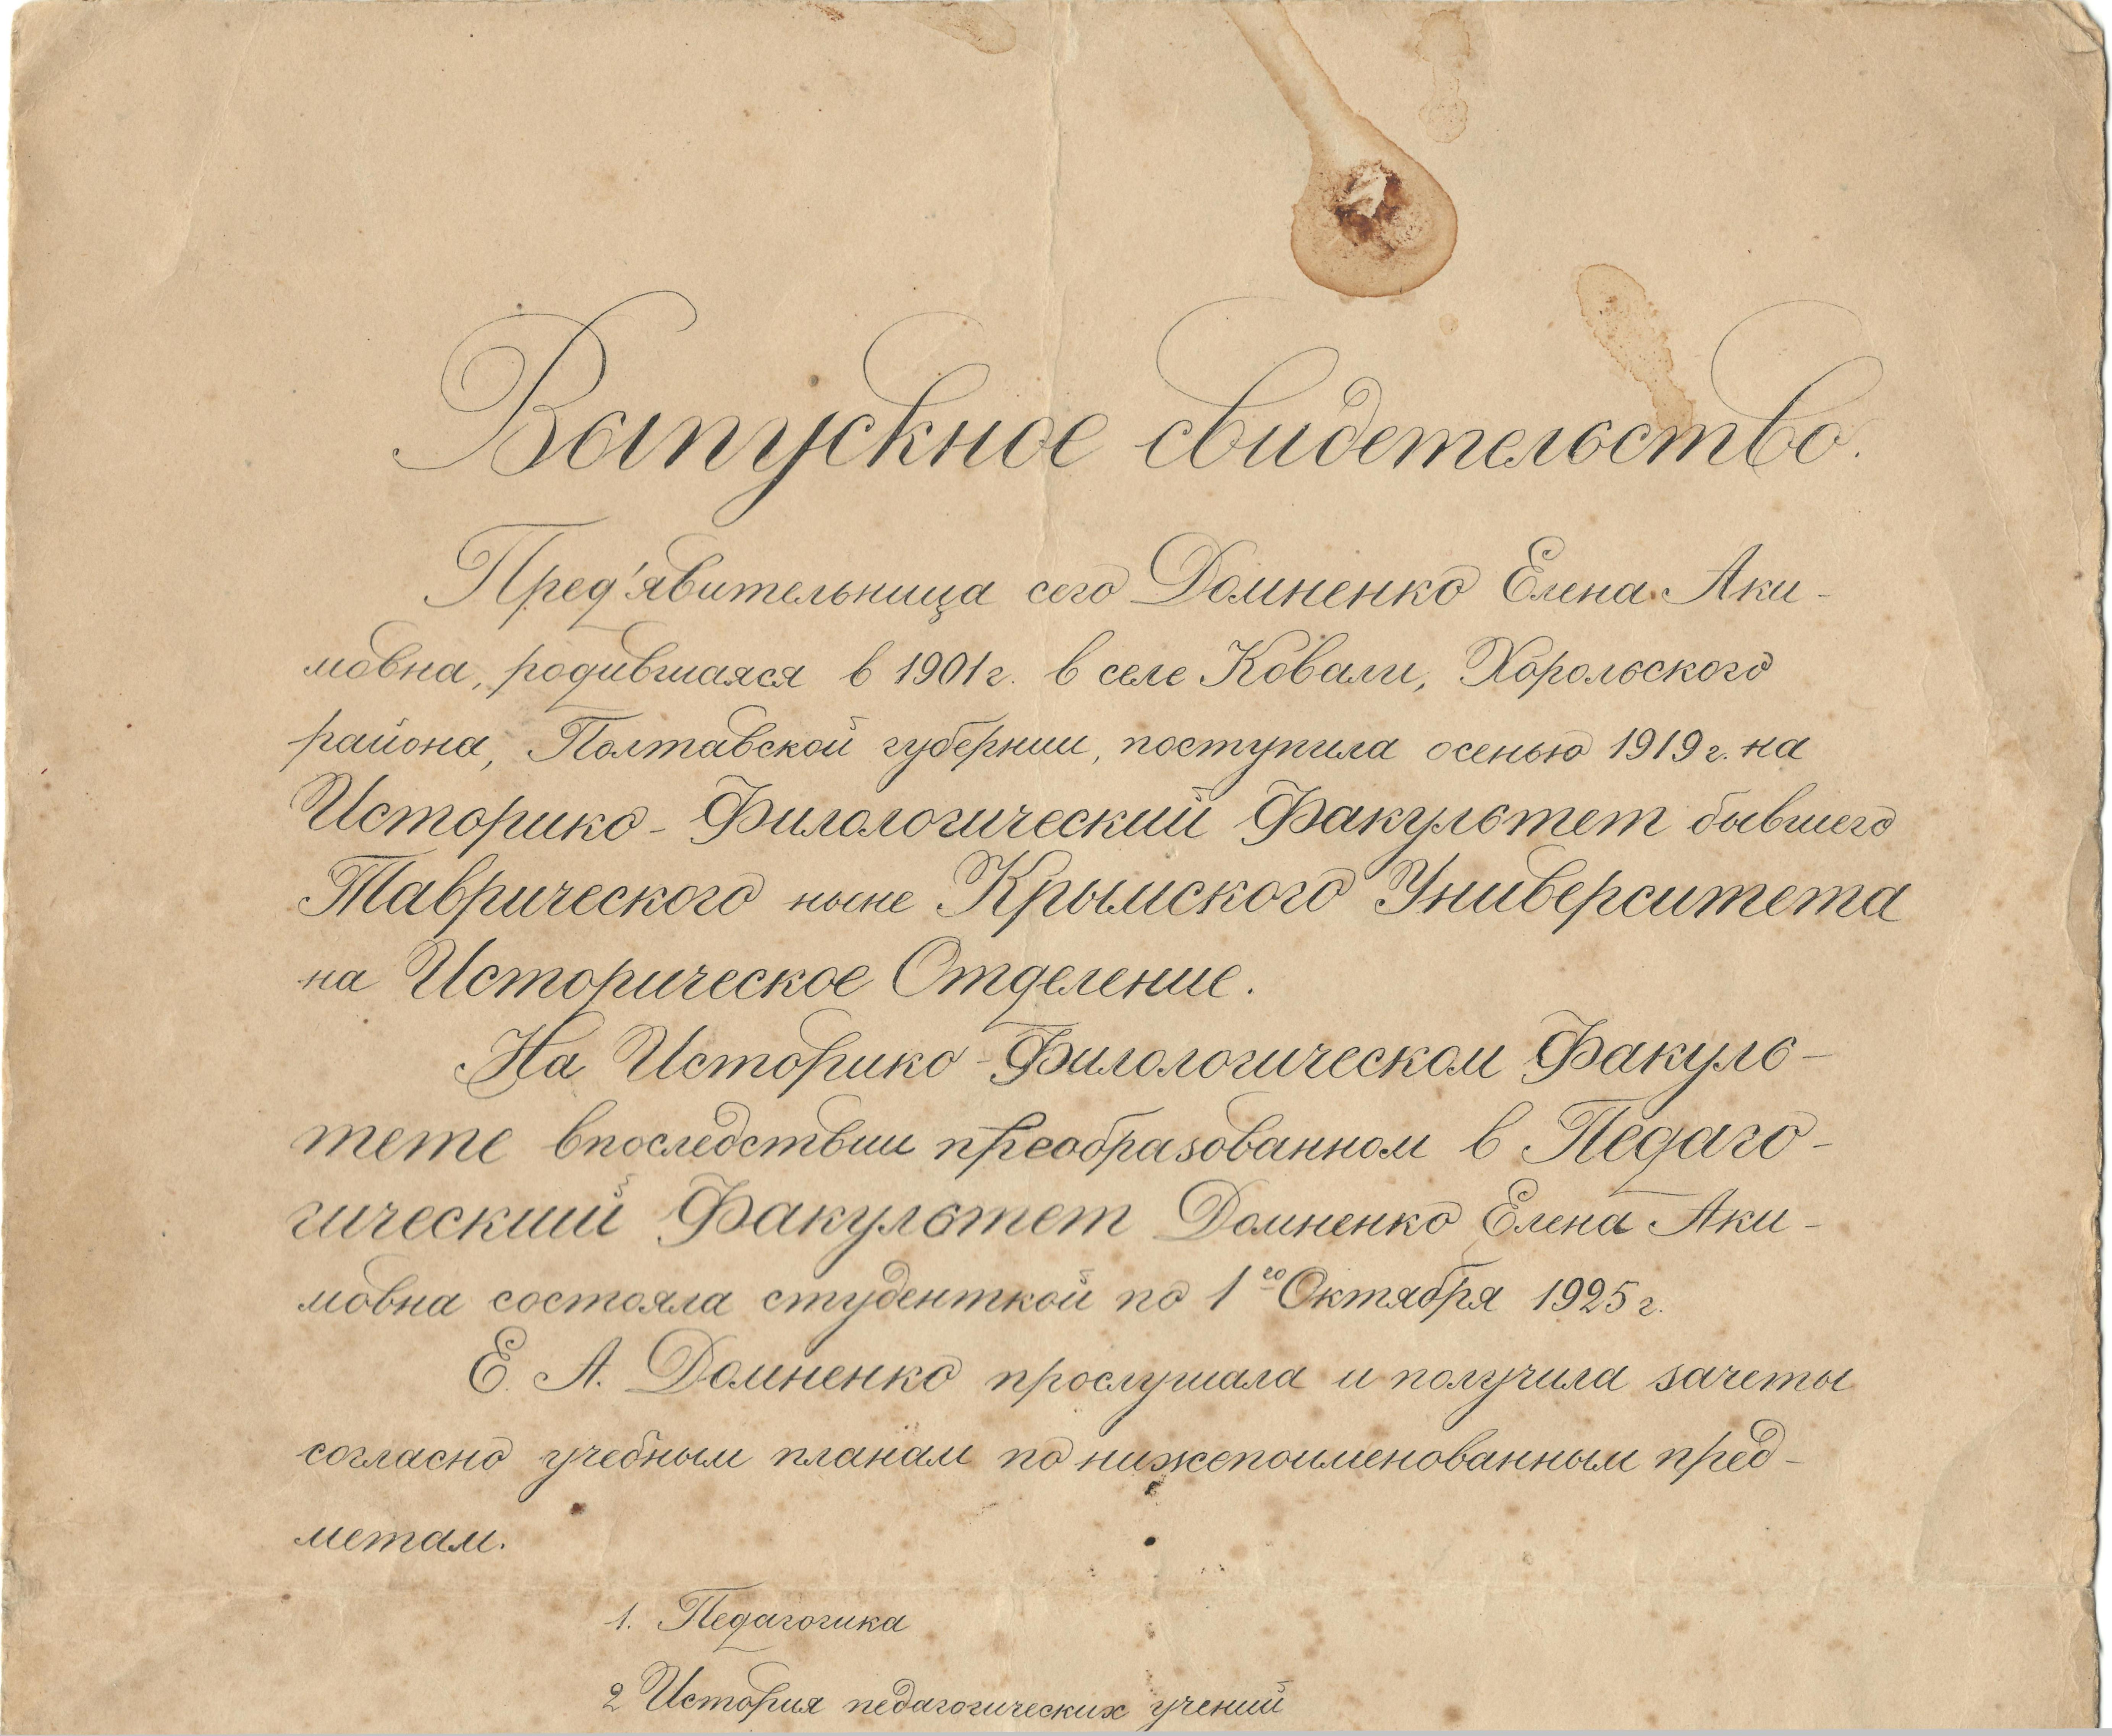 Выпускное свидетельство.
Пред'явительница сего Домненко Елена Аки-
мовна, родившаяся в 1901 г. в селе Ковали, Хорольского
района, Полтавской губернии, поступила осенью 1919 г. на
Историко-Филологический Факультет бывшего
Таврического ныне Крымского Университета
на Историческое Отделение.
На Историко-Филологическом Факуль-
тете впоследствии преобразованном в Педаго-
гический Факультет Домненко Елена Аки-
мовна состояла студенткой по 1го Октября 1925 г.
Е. А. Домненко прослушала и получила зачеты
согласно учебным планам по нижепоименованным пред-
метам.
1. Педагогика
2 История педагогических учений